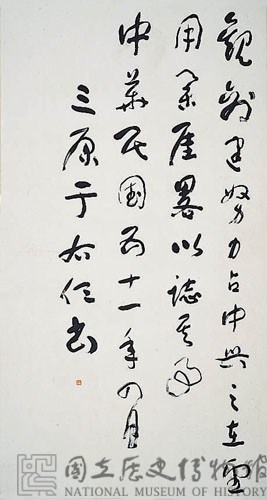 觀創建努力占中興之在望
用策厓畧以誌其事
中華民國五十一年四月
三原于右任書
國立歷史博物館
NATIONAL MUSEUM OF HISTORY